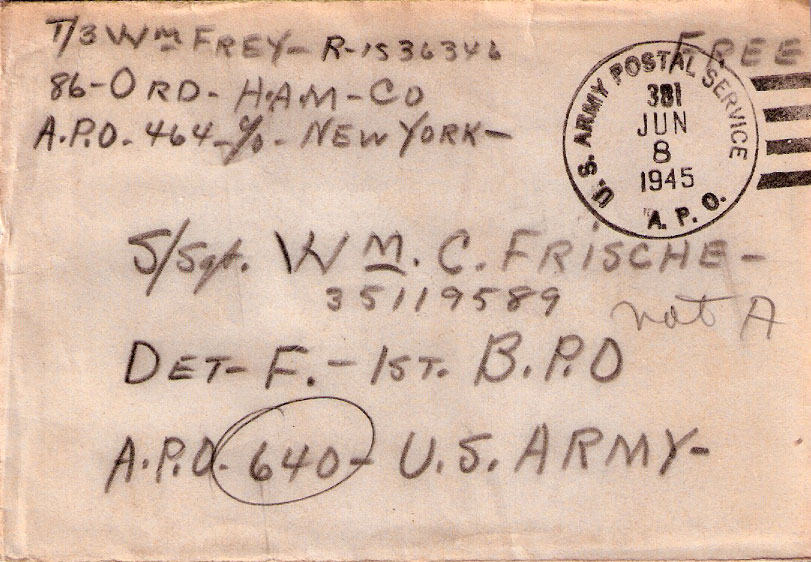 T/3 Wm FREY - R-1536346
86-ORD- H.A.M-CO
A.P.O. 464 - c/o - NEW YORK -
FREE
U.S. ARMY POSTAL SERVICE
381
JUN
8
1945
A.P.O.
S/Sgt. Wm. C. FRISCHE -
35119589
not A
DET- F. - 1ST. B.P.D
A.P.O. 640 - U.S. ARMY -